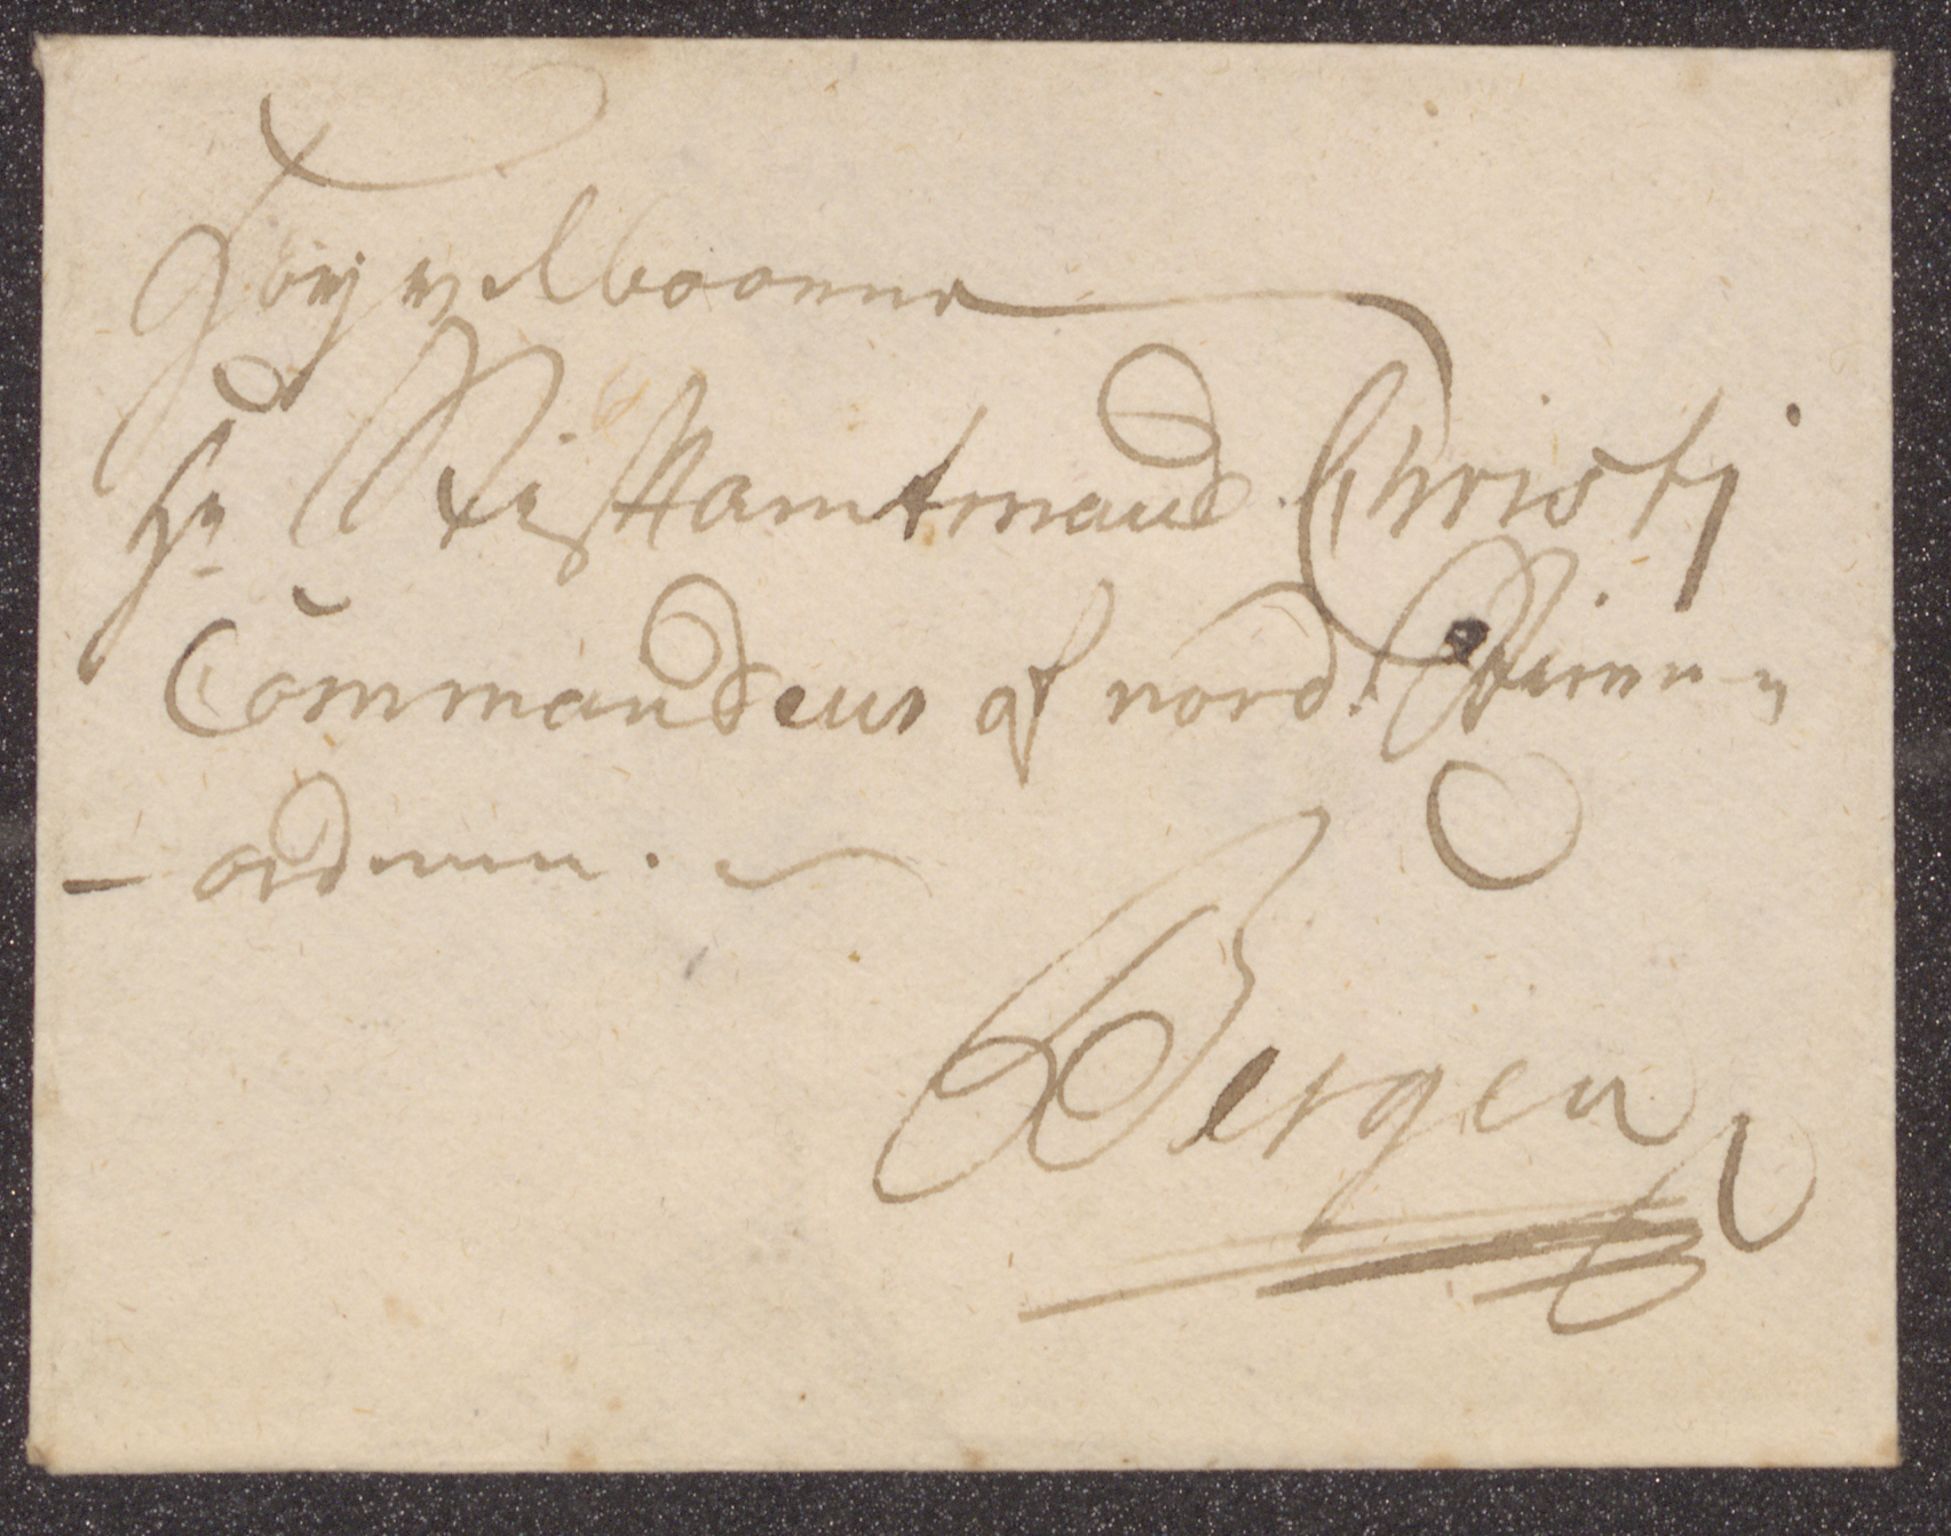 Høyvelbaarne
Hr Stiftamtmand Christj
Commandeur af nord. Stierne
- ordenen.
Bergen